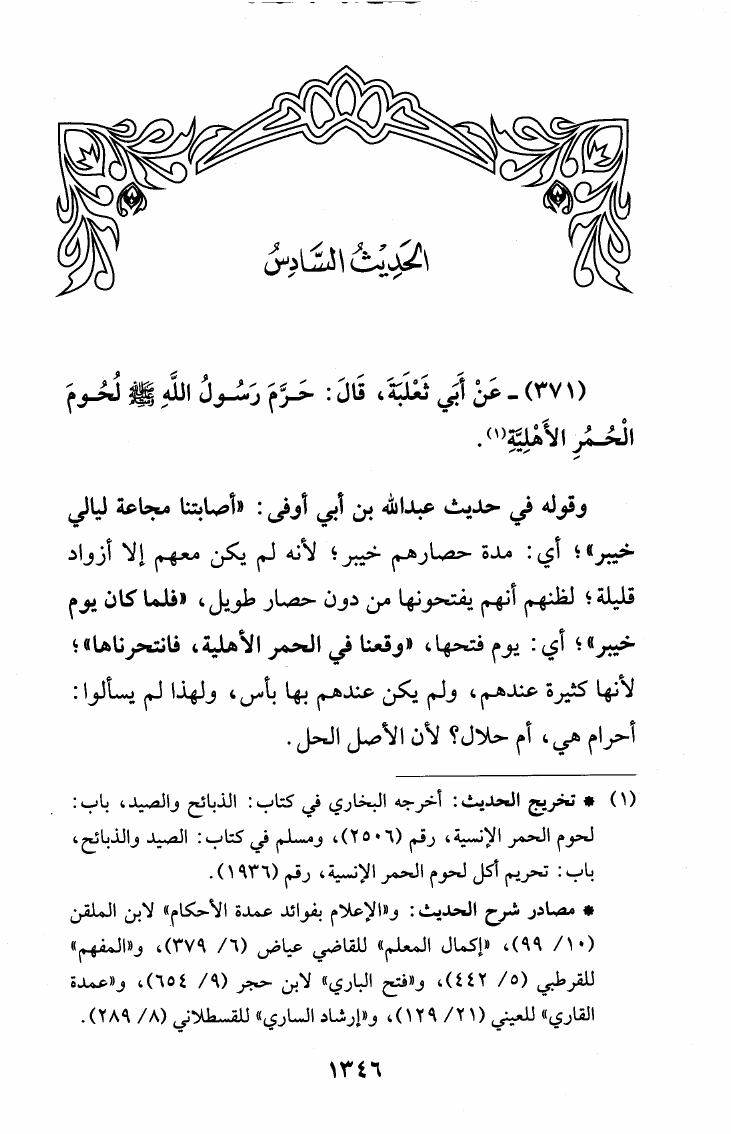 الحَدِيثُ السَّادِسُ
(٣٧١) ـ عَنْ أَبَي ثَعْلَبَةَ، قَالَ: حَـرَّمَ رَسُـولُ اللَّهِ ﷺ لُحُـومَ
الْحُـمُـرِ الأَهْلِيَّةِ(١).
وقوله في حديث عبدالله بن أبي أوفى: «أصابتنا مجاعة ليالي
خيبر»؛ أي: مدة حصارهم خيبر؛ لأنه لم يكن معهم إلا أزواد
قليلة؛ لظنهم أنهم يفتحونها من دون حصار طويل، «فلما كان يوم
خيبر»؛ أي: يوم فتحها، «وقعنا في الحمر الأهلية، فانتحرناها»؛
لأنها كثيرة عندهم، ولم يكن عندهم بها بأس، ولهذا لم يسألوا:
أحرام هي، أم حلال؟ لأن الأصل الحل.
(١) * تخريج الحديث: أخرجه البخاري في كتاب: الذبائح والصيد، باب:
لحوم الحمر الإنسية، رقم (٢٥٠٦)، ومسلم في كتاب: الصيد والذبائح،
باب: تحريم أكل لحوم الحمر الإنسية، رقم (١٩٣٦).
* مصادر شرح الحديث: و«الإعلام بفوائد عمدة الأحكام» لابن الملقن
(١٠/ ٩٩)، «إكمال المعلم» للقاضي عياض (٦/ ٣٧٩)، و«المفهم»
للقرطبي (٥/ ٤٤٢)، و«فتح الباري» لابن حجر (٩/ ٦٥٤)، و«عمدة
القاري» للعيني (٢١/ ١٢٩)، و«إرشاد الساري» للقسطلاني (٨/ ٢٨٩).
١٣٤٦